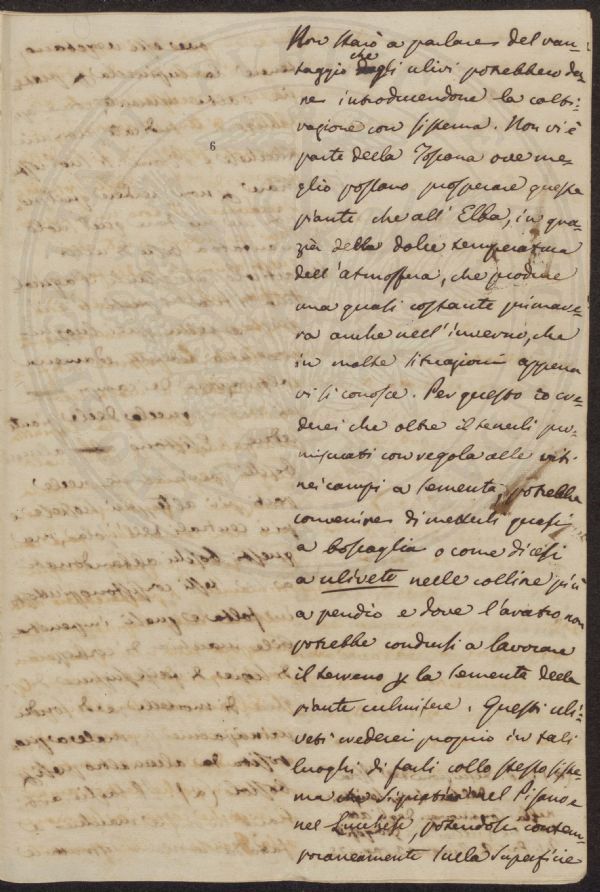 6
Non starò a parlare del van-
taggio che gli ulivi potrebbero da-
re introducendone la colti-
vazione con sistema. Non vi è
parte della Toscana ove me-
glio possano prosperare queste
piante che all'Elba, in gra-
zia della dolce temperatura
dell'atmosfera, che produce
una quasi costante primave-
ra anche nell'inverno, che
in molte situazioni appena
vi si conosce. Per questo io cre-
derei che oltre il tenerli pro-
miscuati con regola alle viti
nei campi a sementa, potrebbe
convenire di metterli quasi
a boscaglia o come dicesi
a uliveto nelle colline più
a pendio e dove l'aratro non
potrebbe condursi a lavorare
il terreno p la sementa delle
piante culmifere. Questi uli-
veti crederei proprio in tali
luoghi di farli collo stesso siste-
ma che si pratica nel Pisano e
nel Lucchese, potendosi contem-
poraneamente sulla superficie